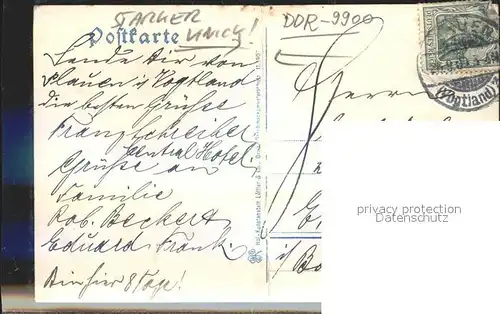 STARKER
KNICK!
DDR-9900
Postkarte
Sende Dir von
Plauen i/Vogtland
die besten Grüsse
Franz Schreiber
Central Hotel.
Grüße an
Familie
Rob. Beckert
Eduard Frank.
Bin hier 8 Tage!
Herrn
i/Bo
(Vogtland)
privacy protection
Datenschutz